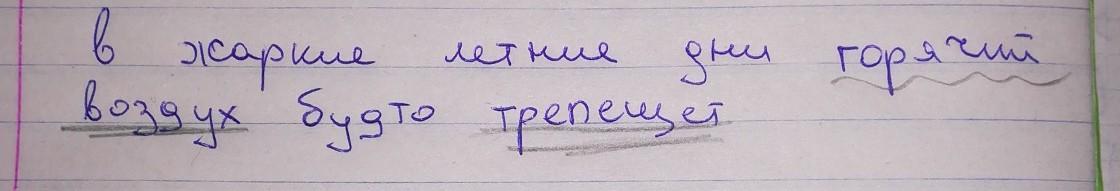 в жаркие летние дни горячий
воздух будто трепещет